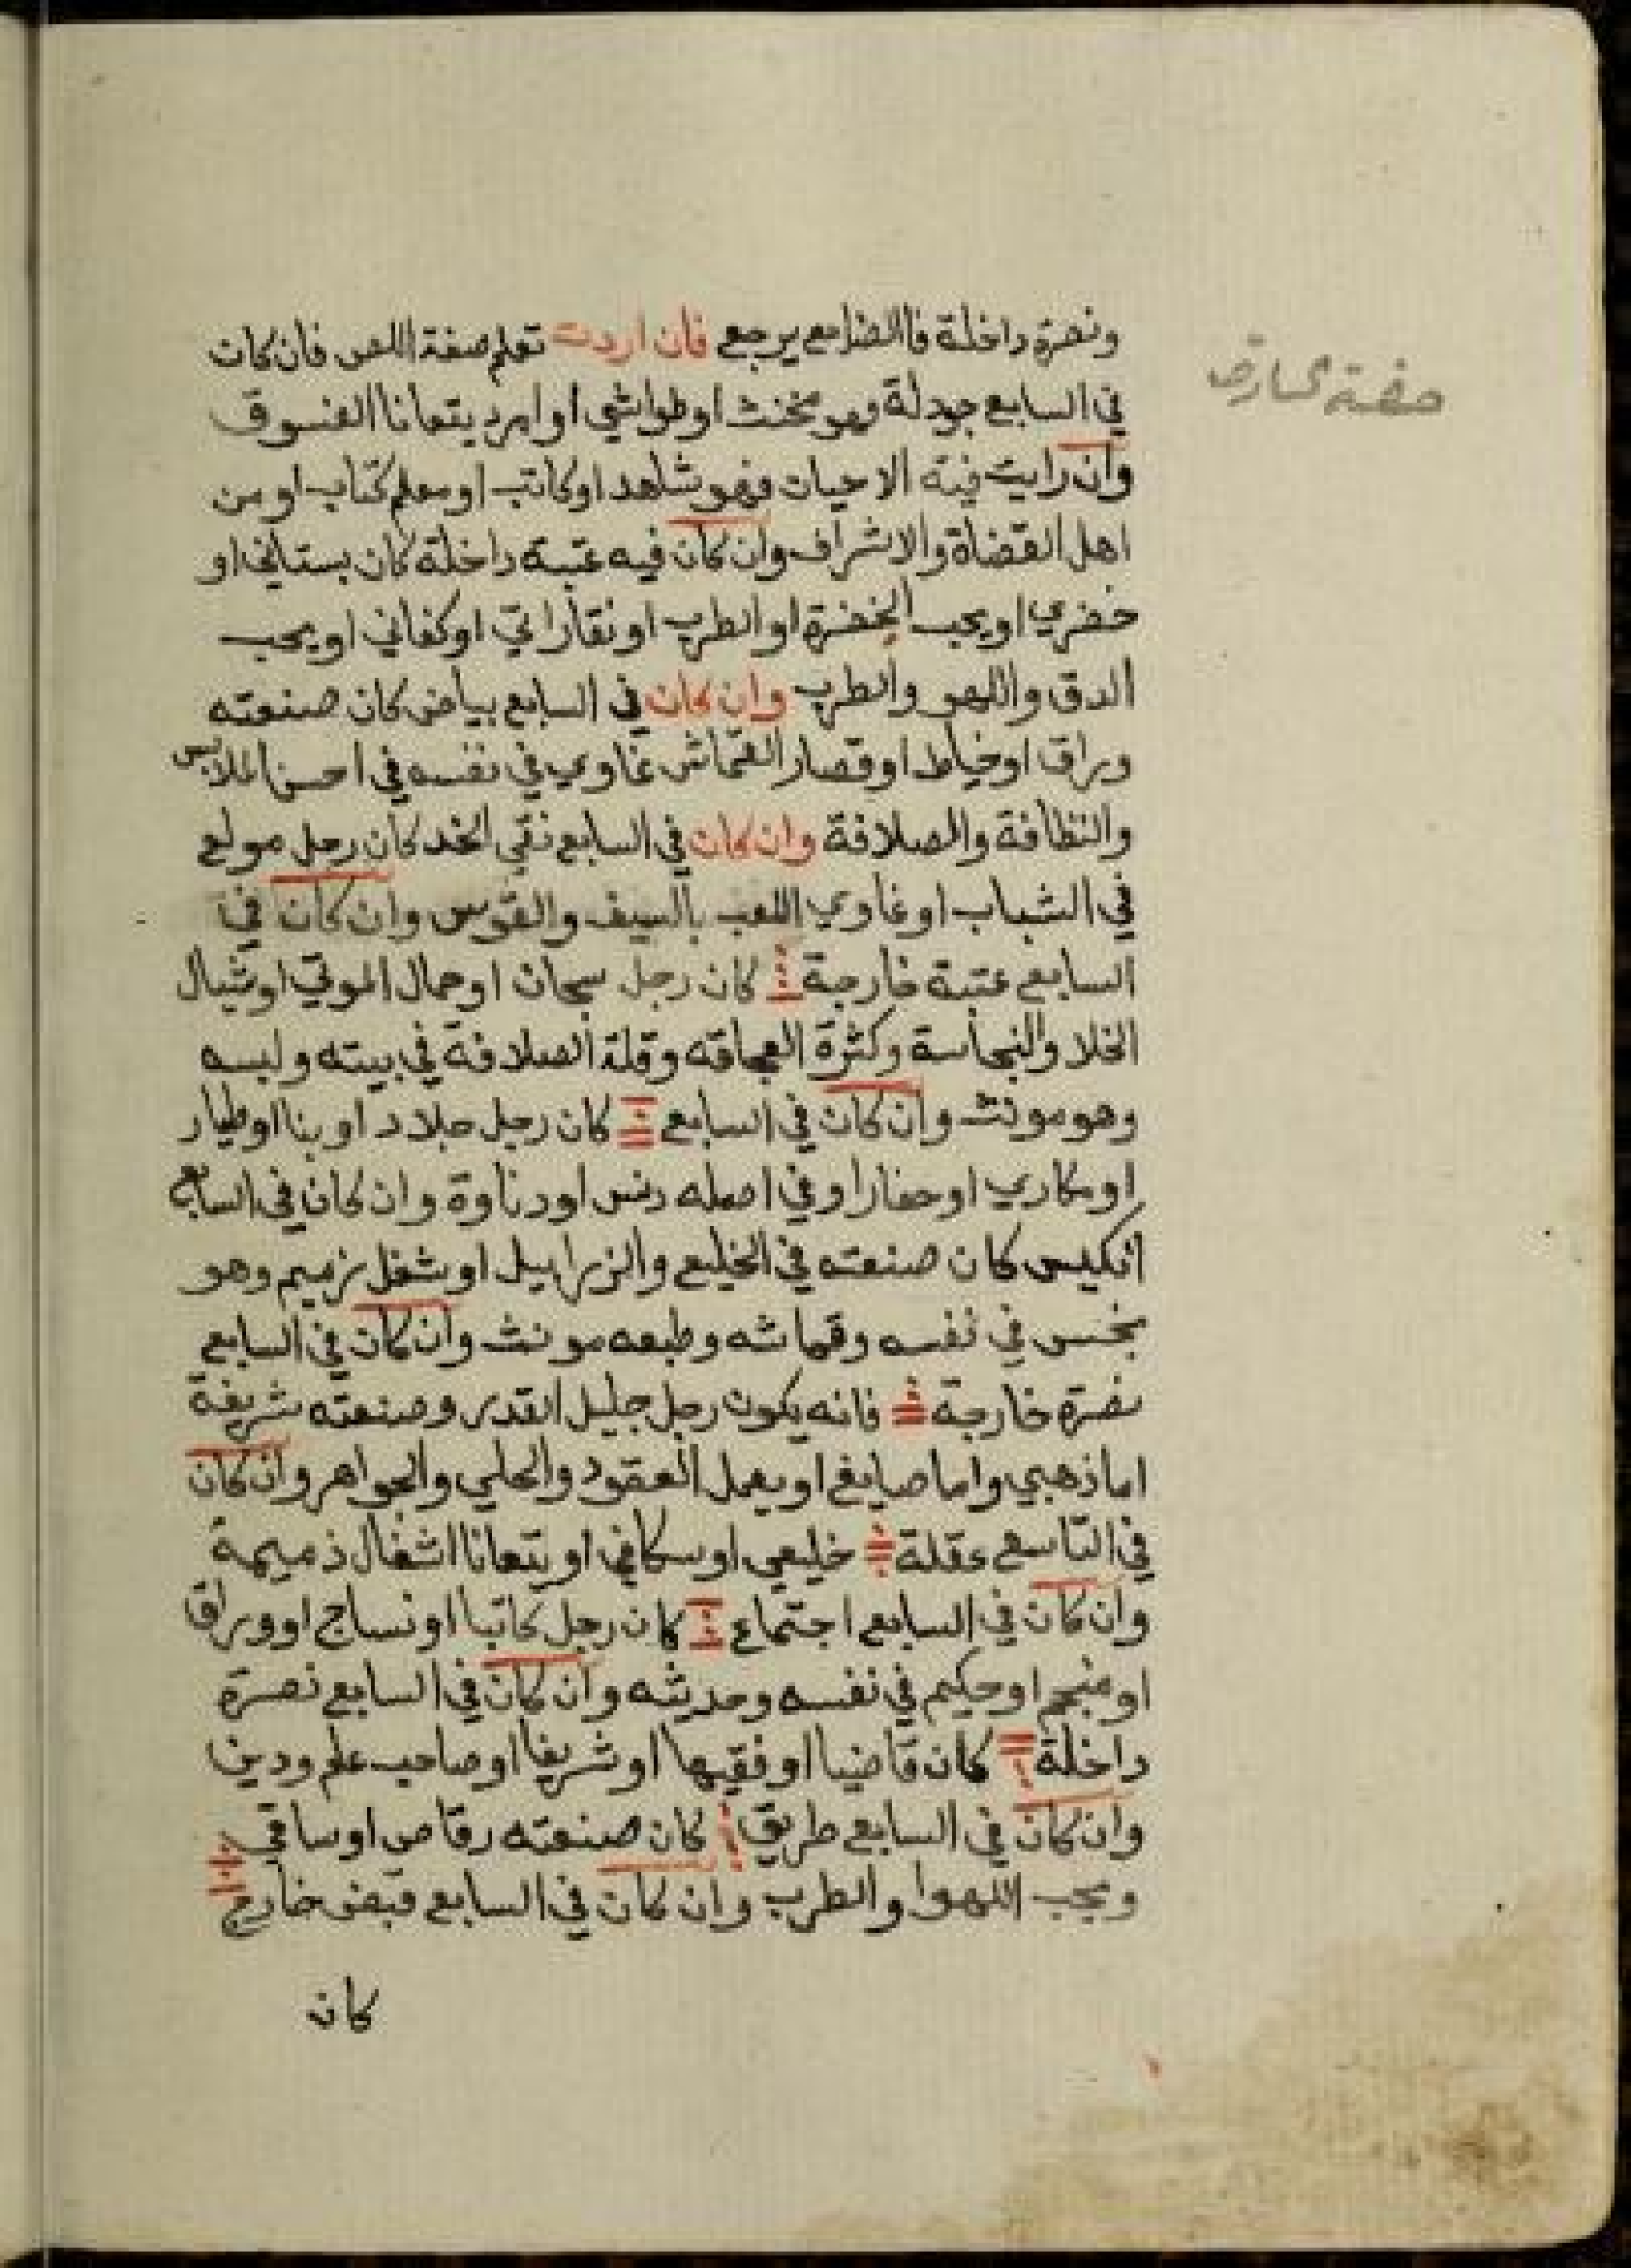 ونصرة داخلة فاالضامع يرجع فان اردت تعلم صفة اللص فان كات
صفة السارق
في السابع جودلة وهو مخنث او طواشي او امرد يتعانا الفسوق
وان رايت فيه الاحيات فهو شاهد او كاتب او معلم كتاب او من
اهل القضاة والاشراف وان كان فيه عتبة داخلة كان بستاني او
خضري او يحب الخضرة او الطرب او نقاراتي او كفاني او يحب
الدق واللهو والطرب وان كان في السابع بياض كان صنعته
وراق او خياط او قصار القماش غاوي في نفسه في احسن الملابس
والنظافة والصلافة وان كان في السابع نقي الخد كان رجل مولع
في الشباب او غاوي اللعب بالسيف والقوس وان كان في
السابع عتبة خارجة كان رجل سجان او حمال الموتي او شيال
الخلا والنجاسة وكثرة العجاقه وقلة الصلافة في بيته ولبسه
وهو مونث وان كان في السابع كان رجل جلاد او بنا او طيار
او مكاري او حفارا وفي اصله دنس او دناوة وان كان في السابع
انكيس كان صنعته في الخليع والزرابيل او شغل زميم وهو
نجس في نفسه وقماشه وطبعه مونث وان كان في السابع
نصرة خارجة فانه يكون رجل جليل القدر وصنعته شريفة
اما ذهبي واما صايغ او يعمل العقود والحلي والجواهر وان كان
في التاسع عقلة خليعي او سكافي او يتعانا اشغال ذميمة
وان كان في السابع اجتماع كان رجل كاتبا او نساج او وراق
او منجم او حكيم في نفسه وحديثه وان كان في السابع نصرة
داخلة كان قاضيا او فقيها او شريفا او صاحب علم ودين
وان كان في السابع طريق كان صنعته رقاص او ساقي
ويحب اللهوا والطرب وان كان في السابع قبض خارج
كان